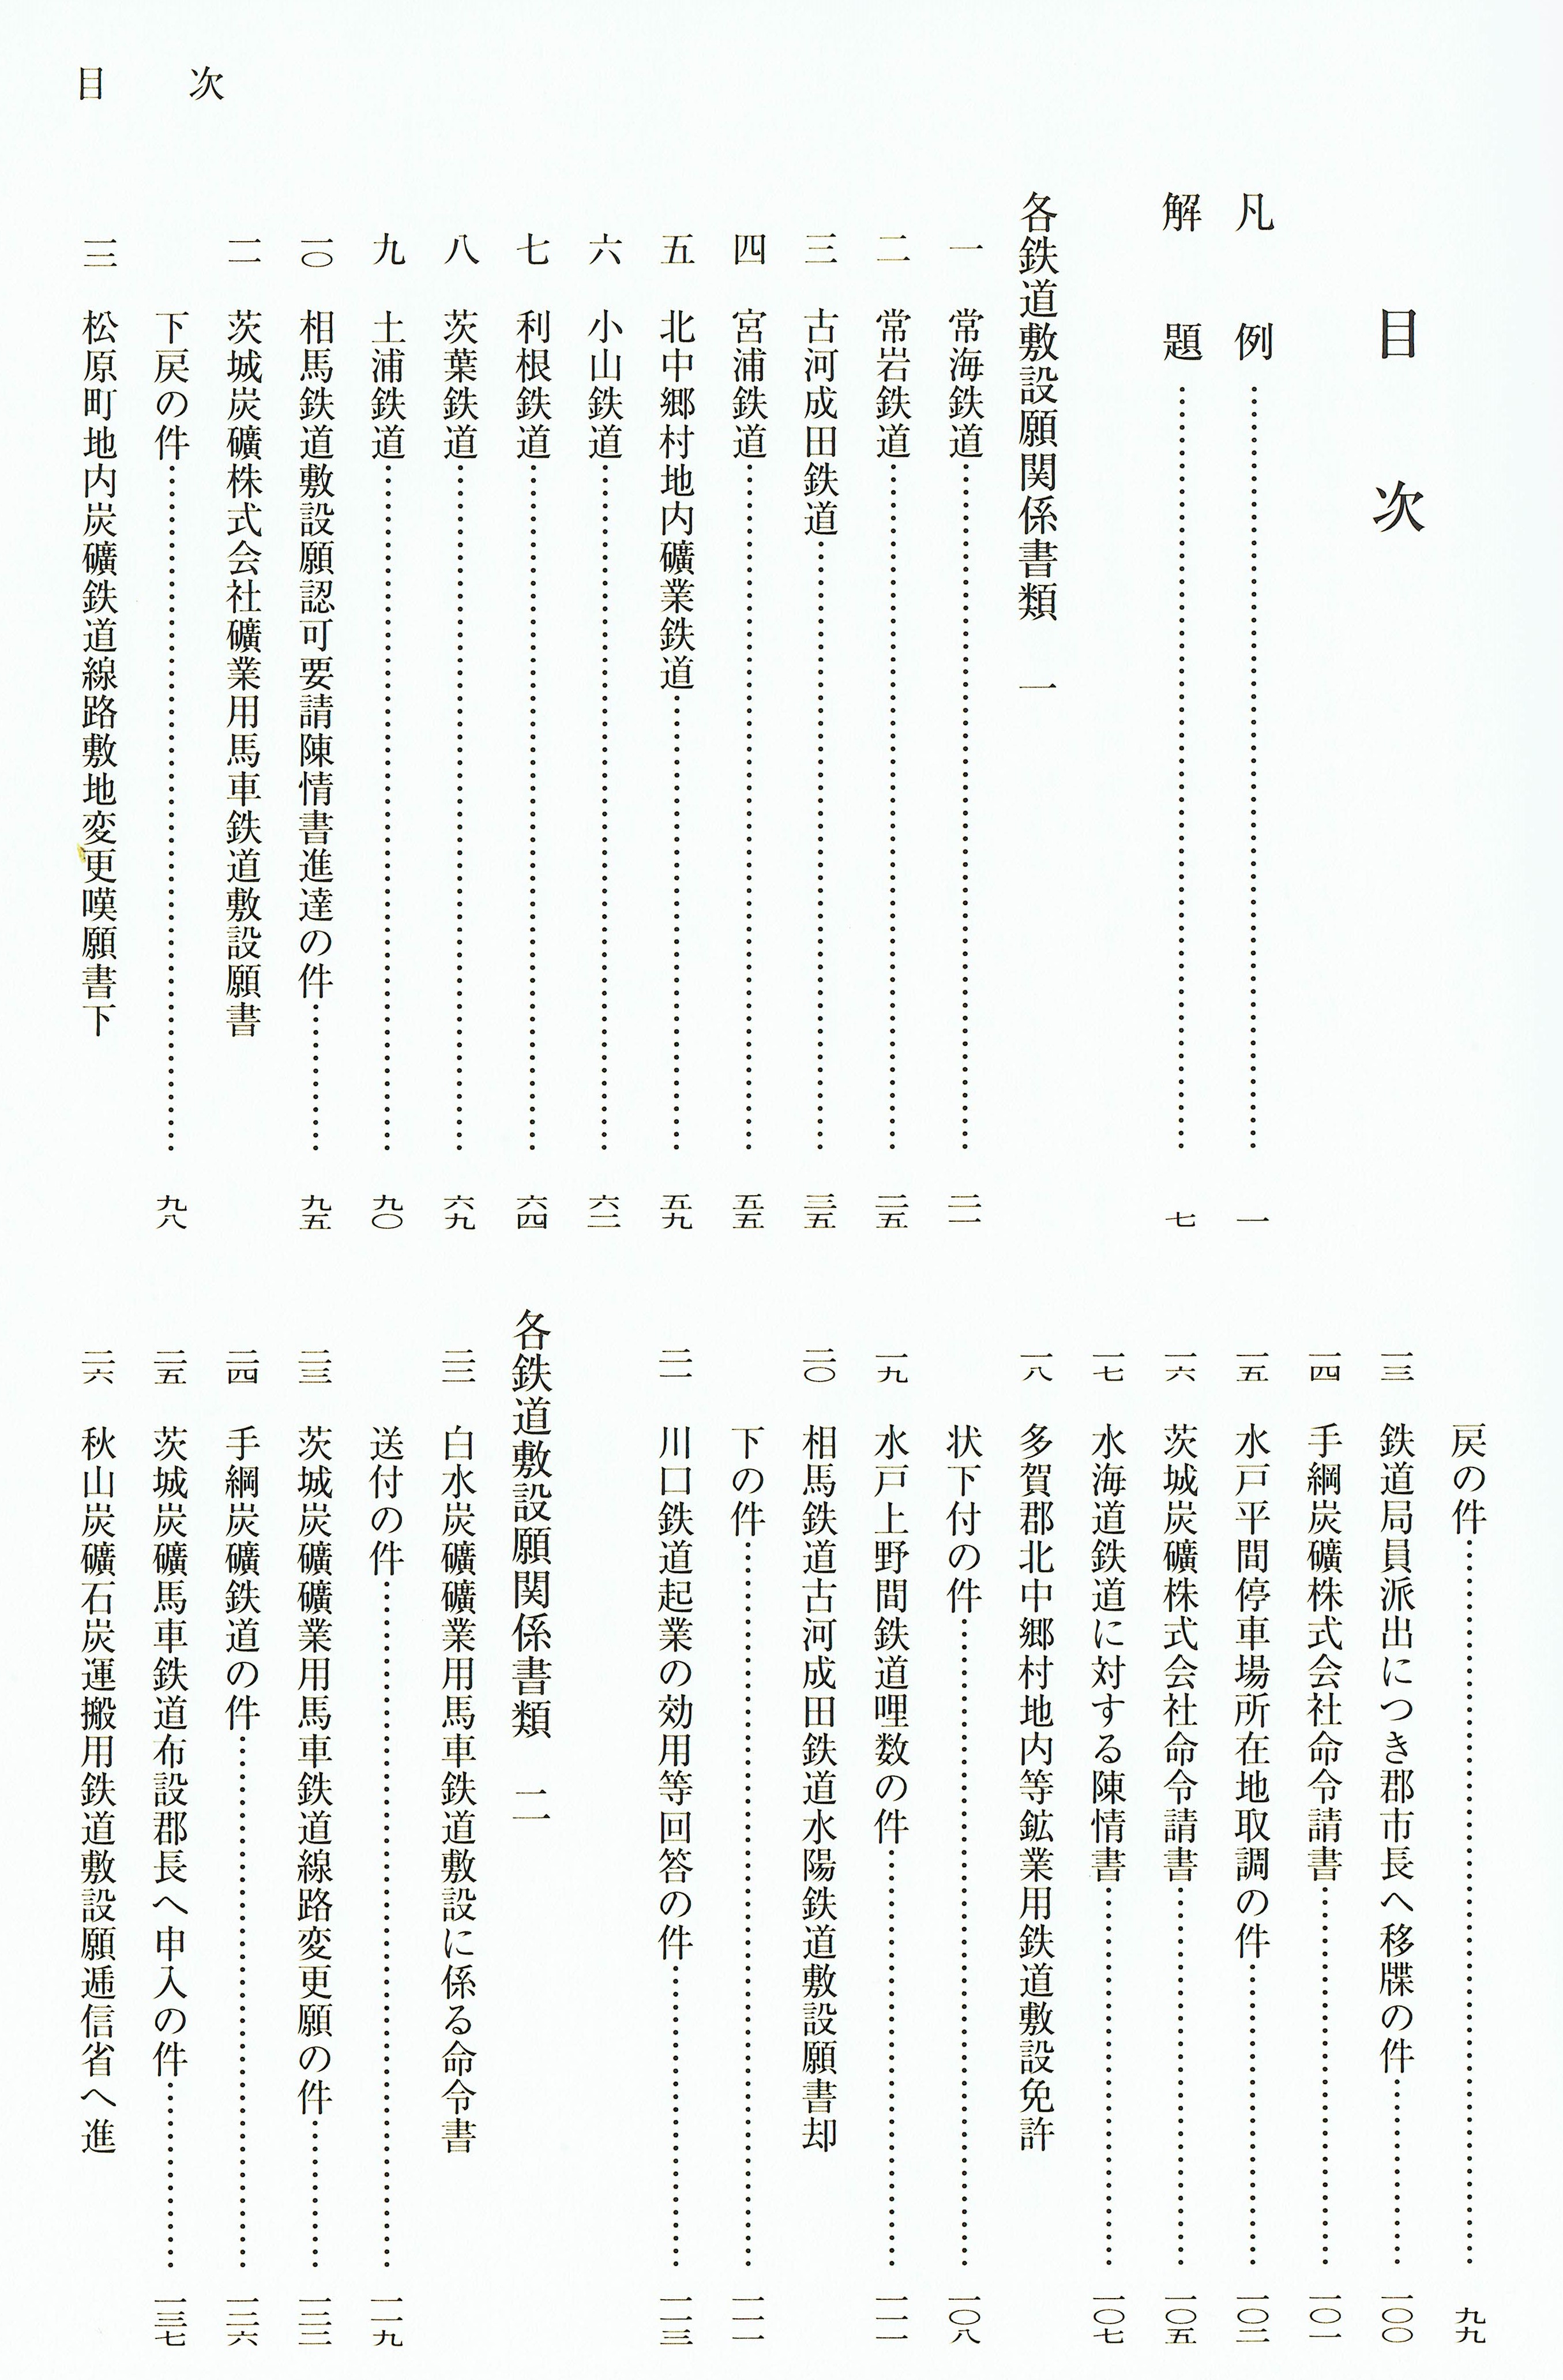 目　次
目　次
凡　例…………一
解　題…………七
各鉄道敷設願関係書類　一
一　常海鉄道…………二一
二　常岩鉄道…………二五
三　古河成田鉄道…………三五
四　宮浦鉄道…………五五
五　北中郷村地内礦業鉄道…………五九
六　小山鉄道…………六二
七　利根鉄道…………六四
八　茨葉鉄道…………六九
九　土浦鉄道…………九〇
一〇　相馬鉄道敷設願認可要請陳情書進達の件…………九五
一一　茨城炭礦株式会社礦業用馬車鉄道敷設願書
下戻の件…………九八
一二　松原町地内炭礦鉄道線路敷地変更嘆願書下
戻の件…………九九
一三　鉄道局員派出につき郡市長へ移牒の件…………一〇〇
一四　手綱炭礦株式会社命令請書…………一〇一
一五　水戸平間停車場所在地取調の件…………一〇二
一六　茨城炭礦株式会社命令請書…………一〇五
一七　水海道鉄道に対する陳情書…………一〇七
一八　多賀郡北中郷村地内等鉱業用鉄道敷設免許
状下付の件…………一〇八
一九　水戸上野間鉄道哩数の件…………一一一
二〇　相馬鉄道古河成田鉄道水陽鉄道敷設願書却
下の件…………一一一
二一　川口鉄道起業の効用等回答の件…………一一三
各鉄道敷設願関係書類　二
二二　白水炭礦礦業用馬車鉄道敷設に係る命令書
送付の件…………一一九
二三　茨城炭礦礦業用馬車鉄道線路変更願の件…………一二二
二四　手綱炭礦鉄道の件…………一二六
二五　茨城炭礦馬車鉄道布設郡長へ申入の件…………一三七
二六　秋山炭礦石炭運搬用鉄道敷設願逓信省へ進